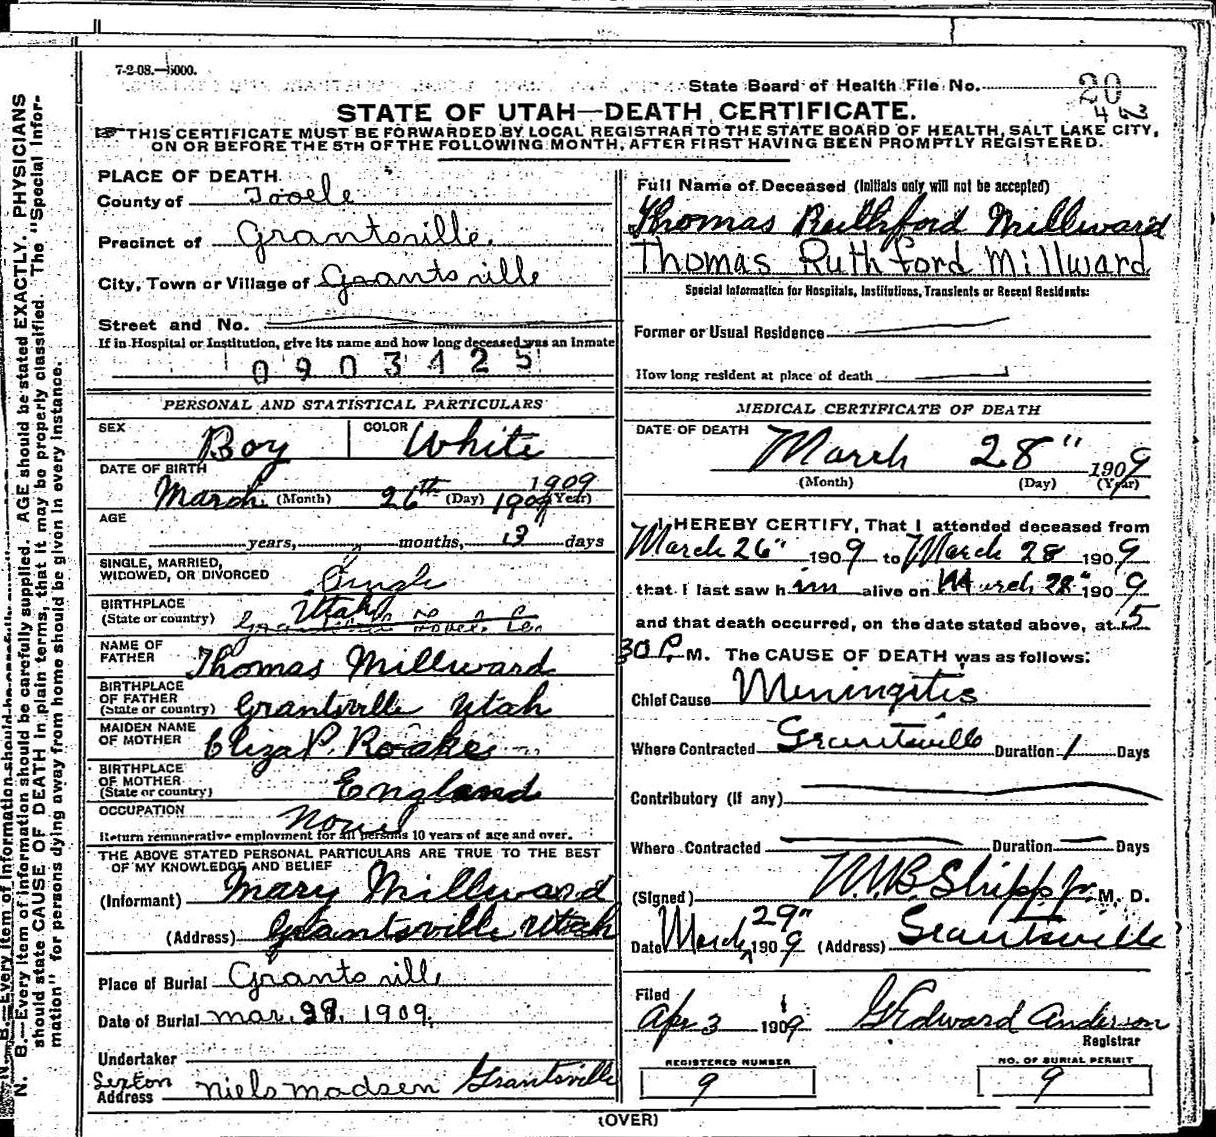 7-2-08.—5000.
State Board of Health File No.
20
42
STATE OF UTAH—DEATH CERTIFICATE.
☞THIS CERTIFICATE MUST BE FORWARDED BY LOCAL REGISTRAR TO THE STATE BOARD OF HEALTH, SALT LAKE CITY,
ON OR BEFORE THE 5TH OF THE FOLLOWING MONTH, AFTER FIRST HAVING BEEN PROMPTLY REGISTERED.
PLACE OF DEATH
County of Tooele
Precinct of Grantsville.
City, Town or Village of Grantsville
Street and No.
If in Hospital or Institution, give its name and how long deceased was an Inmate
0903425
PERSONAL AND STATISTICAL PARTICULARS
SEX Boy COLOR White
DATE OF BIRTH
1909
March (Month) 26th (Day) 1909 (Year)
AGE
years, " months, 3 days
SINGLE, MARRIED,
WIDOWED, OR DIVORCED Single
BIRTHPLACE
(State or country) Utah
Grantsville Tooele Co.
NAME OF
FATHER Thomas Millward
BIRTHPLACE
OF FATHER
(State or country) Grantsville Utah
MAIDEN NAME
OF MOTHER Eliza P. Roake
BIRTHPLACE
OF MOTHER
(State or country) England
OCCUPATION
Return remunerative employment for all persons 10 years of age and over.
THE ABOVE STATED PERSONAL PARTICULARS ARE TRUE TO THE BEST
OF MY KNOWLEDGE AND BELIEF
(Informant) Mary Millward
(Address) Grantsville Utah
Place of Burial Grantsville
Date of Burial mar. 29. 1909.
Undertaker
Sexton
Address Niels Madsen Grantsville
Full Name of Deceased (Initials only will not be accepted)
Thomas Ruthford Millward
Thomas Ruthford Millward
Special Information for Hospitals, Institutions, Transients or Recent Residents:
Former or Usual Residence
How long resident at place of death
MEDICAL CERTIFICATE OF DEATH
DATE OF DEATH
March 28" 1909
(Month) (Day) (Year)
I HEREBY CERTIFY, That I attended deceased from
March 26" 1909 to March 28 1909
that I last saw him alive on March 28" 1909
and that death occurred, on the date stated above, at 5
30 P. M. The CAUSE OF DEATH was as follows:
Chief Cause Meningitis
Where Contracted Grantsville Duration 1 Days
Contributory (If any)
Where Contracted Duration Days
(Signed) Shipp Jr. M. D.
29"
Date March 1909 (Address) Grantsville
Filed
Apr 3 1909 Edward Anderson
Registrar
REGISTERED NUMBER
9
NO. OF BURIAL PERMIT
9
(OVER)
N. B.—Every item of information should be carefully supplied. AGE should be stated EXACTLY. PHYSICIANS
should state CAUSE OF DEATH in plain terms, that it may be properly classified. The "Special Infor-
mation" for persons dying away from home should be given in every instance.